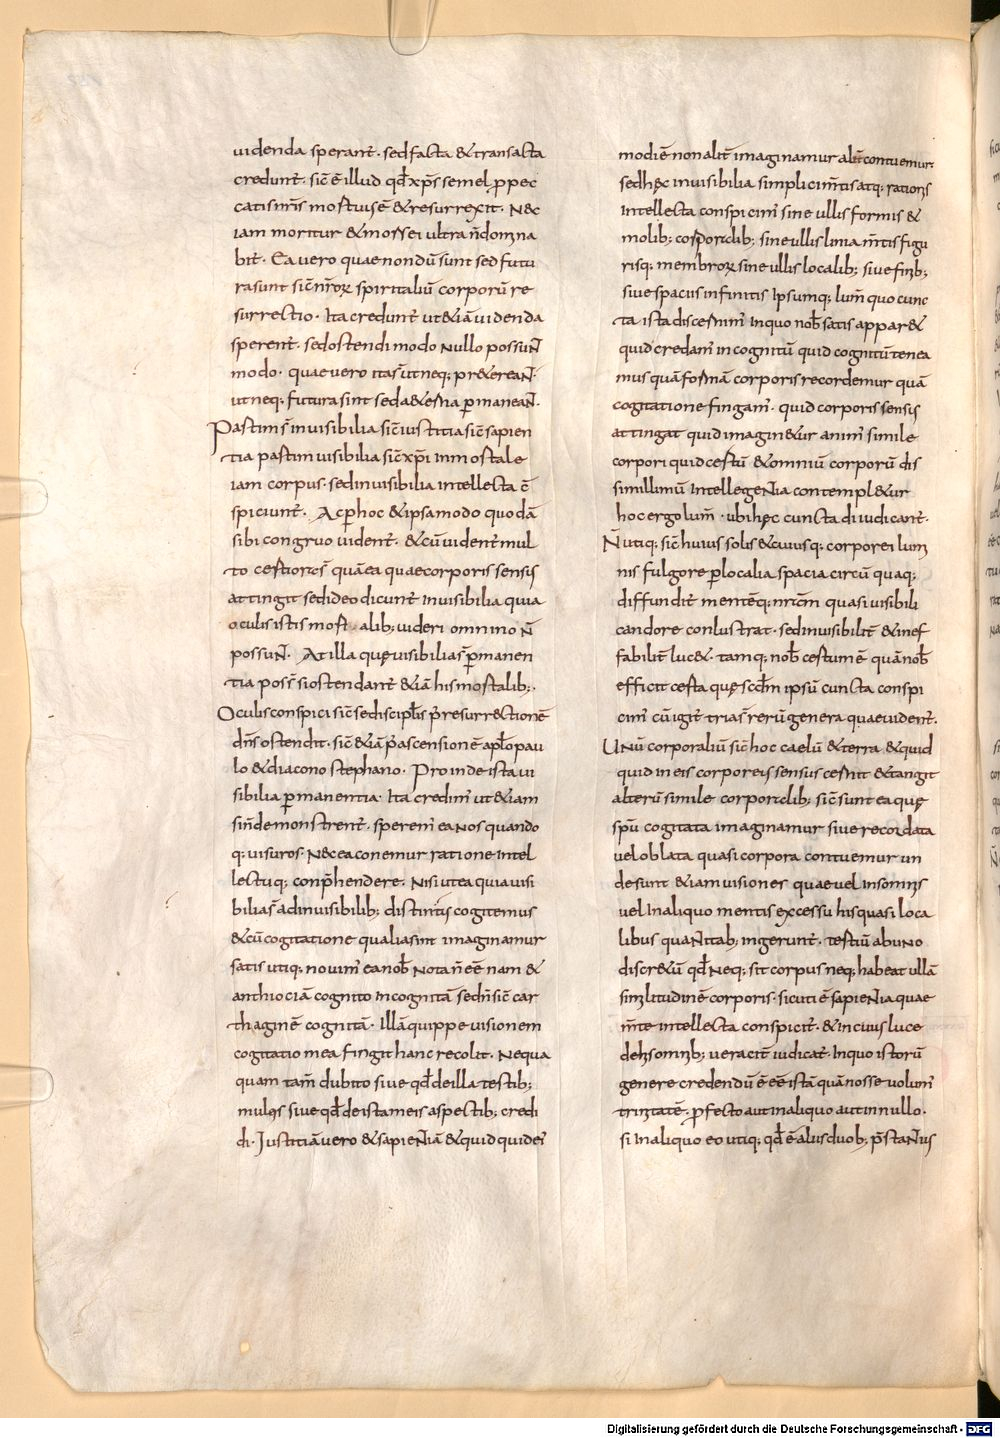 uidenda sperant̄· sed facta & transacta
credunt̄· sic̄ ē illud qd̄ xp̄s semel ꝓ pec
catis nr̄is mortuus ē & resurrexit· nec
iam moritur & mors ei ultra n̄ domina
bit̄· Ea vero quae nondū sunt sed futu
ra sunt sic̄ nr̄orꝝ spiritaliū corporū re
surrectio· Ita credunt̄ ut &iā uidenda
sperent̄· sed ostendi modo nullo possun̄
modo· quae uero ita s̄ ut neq; pr&erean̄·
ut neq; futura sint sed a&erna ꝑmanean̄·
Partim s̄ inuisibilia sic̄ iustitia sic̄ sapien
tia partim uisibilia sic̄ xp̄i inmortale
iam corpus· sed inuisibilia intellecta c̄
spiciunt̄· Ac ꝑ hoc & ipsa modo quodā
sibi congruo uident̄· & cū uident̄ mul
to certiora s̄ quā ea quae corporis sensus
attingit sed ideo dicunt̄ inuisibilia quia
oculis istis mortalib; uideri omnino n̄
possun̄· At illa quę uisibilia s̄ ꝑmanen
tia poss̄ si ostendant̄ &iā his mortalib;·
Oculis conspici sic̄ se discipl̄is p̄ resurrectionē
dn̄s ostendit· sic̄ &iā p̄ ascensionē apl̄o pau
lo & diacono stephano· Proinde ista ui
sibilia ꝑmanentia· Ita credim̄ ut &iam
si n̄ demonstrent̄· sperem̄ ea nos quando
q; uisuros· Nec ea conemur ratione intel
lectuq; conp̄hendere· Nisi ut ea quia uisi
bilia s̄ ad inuisibilib; distintis cogitemus
& cū cogitatione qualia sint imaginamur
satis utiq; nouim̄ ea nob̄ nota n̄ eē nam &
anthiociā cognito incognitā sed n̄ sic̄ car
thaginē cognitā· Illā quippe uisionem
cogitatio mea fingit hanc recolit· Nequa
quam tam̄ dubito siue qd̄ de illa testib;
multis siue qd̄ de ista meis aspectib; credi
di· Iustitiā uero & sapien̄iā & quidquid ei
modi ē non alit̄ imaginamur alit̄ contuemur·
sed hęc inuisibilia simplici m̄tis atq; rationis
intellecta conspicim̄ sine ullis formis &
molib; corporalib; sine ullis liniam̄tis figu
risq; membrorꝝ sine ullis localib; siue finib;
siue spaciis infinitis Ipsumq; lum̄ quo cunc
ta ista discernim̄ in quo nob̄ satis appar&
quid credam̄ incognitū quid cognitū tenea
mus quā formā corporis recordemur quā
cogitatione fingam̄· quid corporis sensus
attingat quid imagin&ur anim̄ simile
corpori quid certū & omniū corporū dis
simillimū intellegen̄ia contempl&ur
hoc ergo lum̄· ubi hęc cuncta diiudicant̄·
N̄ utiq; sic̄ huius solis & cuiusq; corporei lumi
nis fulgore ꝑ localia spacia circū quaq;
diffundit̄ mentēq; nr̄am quasi uisibili
candore conlustrat· sed inuisibilit̄ & inef
fabilit̄ luc&· tamq; nob̄ certum ē quā nob̄
efficit certa quę scd̄m ipsū cuncta conspi
cim̄ cū igit̄ tria s̄ rerū genera quae uident̄·
Unū corporaliū sic̄ hoc caelū & terra & quid
quid in eis corporeis sensus cernit & tangit
alterū simile corporalib; sic̄ sunt ea quę
sp̄u cogitata imaginamur siue recordata
uel oblata quasi corpora contuemur un
de sunt &iam uisiones quae uel in somnis
uel in aliquo mentis excessu his quasi loca
libus quan̄itatib; ingerunt̄· tertiū ab uno
discr&ū qd̄ neq; sit corpus neq; habeat ullā
similitudinē corporis· sicuti ē sapien̄ia quae
m̄te intellecta conspicit̄· & in cuius luce
de his omnib; ueracit̄ iudicat̄· In quo istorū
genere credendū ē eē istā quā nosse uolum̄
trinitatē· ꝓfecto aut in aliquo aut in nullo·
si in aliquo eo utiq; qd̄ ē aliis duob; p̄stan̄ius